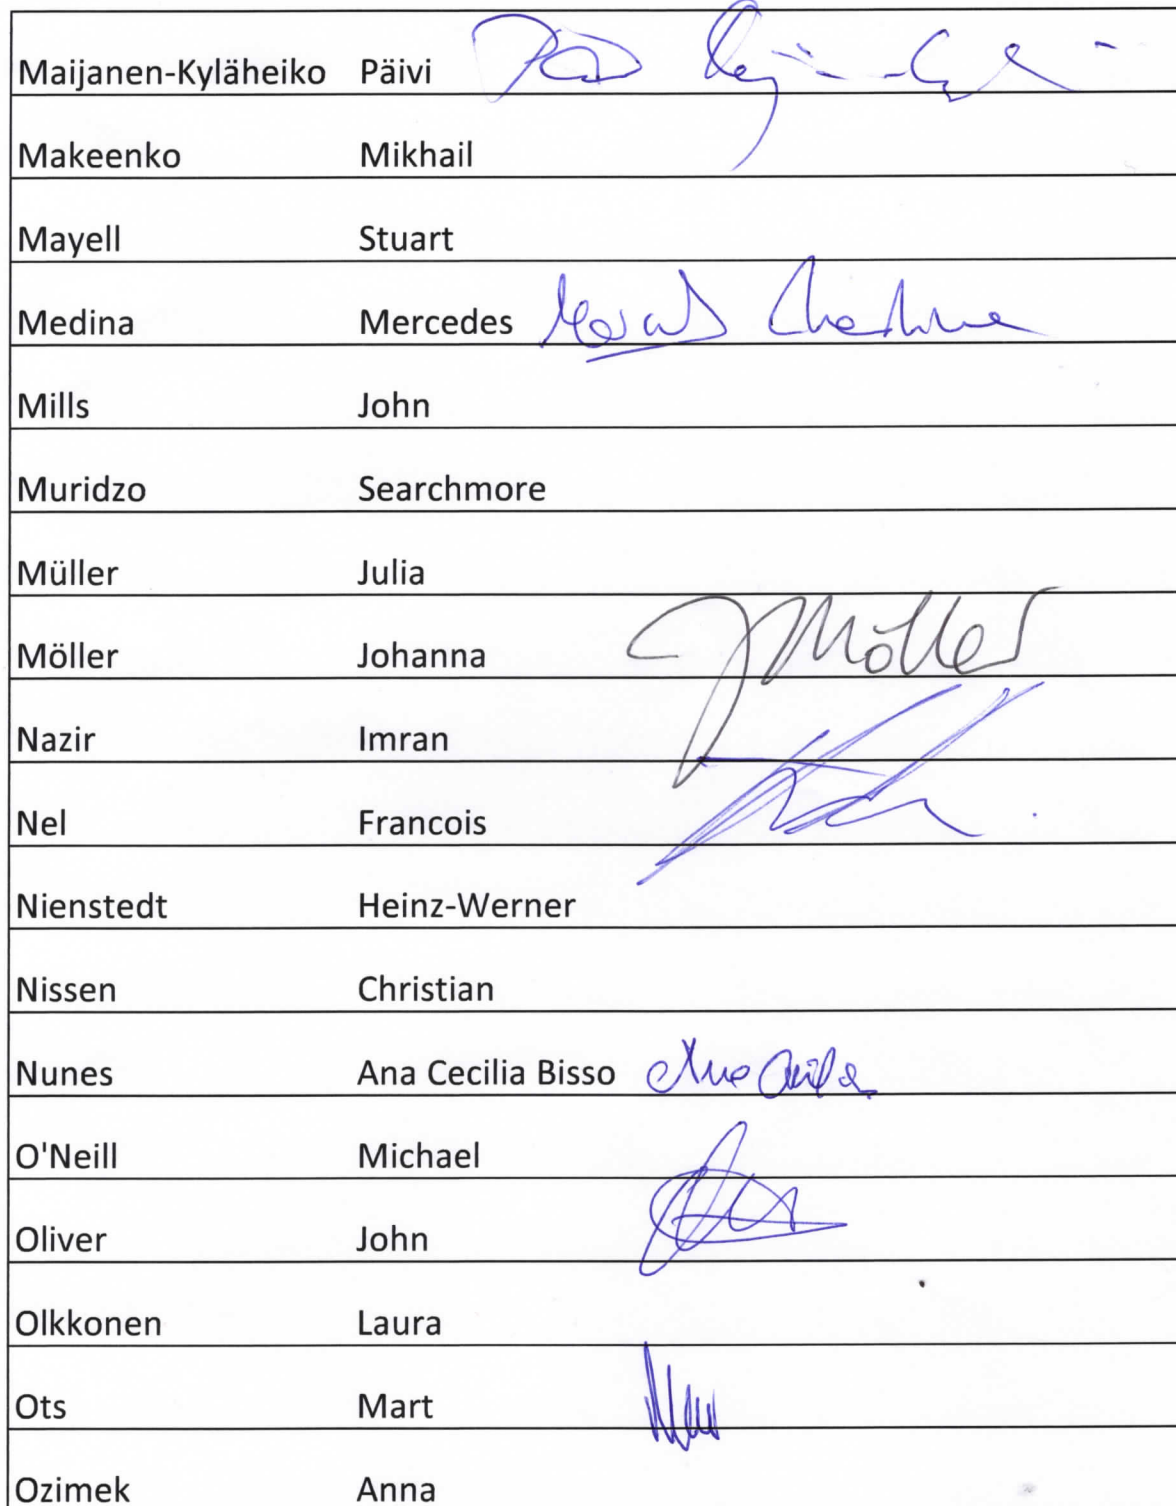 Maijanen-Kyläheiko Päivi
Makeenko Mikhail
Mayell Stuart
Medina Mercedes
Mills John
Muridzo Searchmore
Müller Julia
Möller Johanna JMöller
Nazir Imran
Nel Francois
Nienstedt Heinz-Werner
Nissen Christian
Nunes Ana Cecilia Bisso Ana Cecilia
O'Neill Michael
Oliver John
Olkkonen Laura
Ots Mart
Ozimek Anna